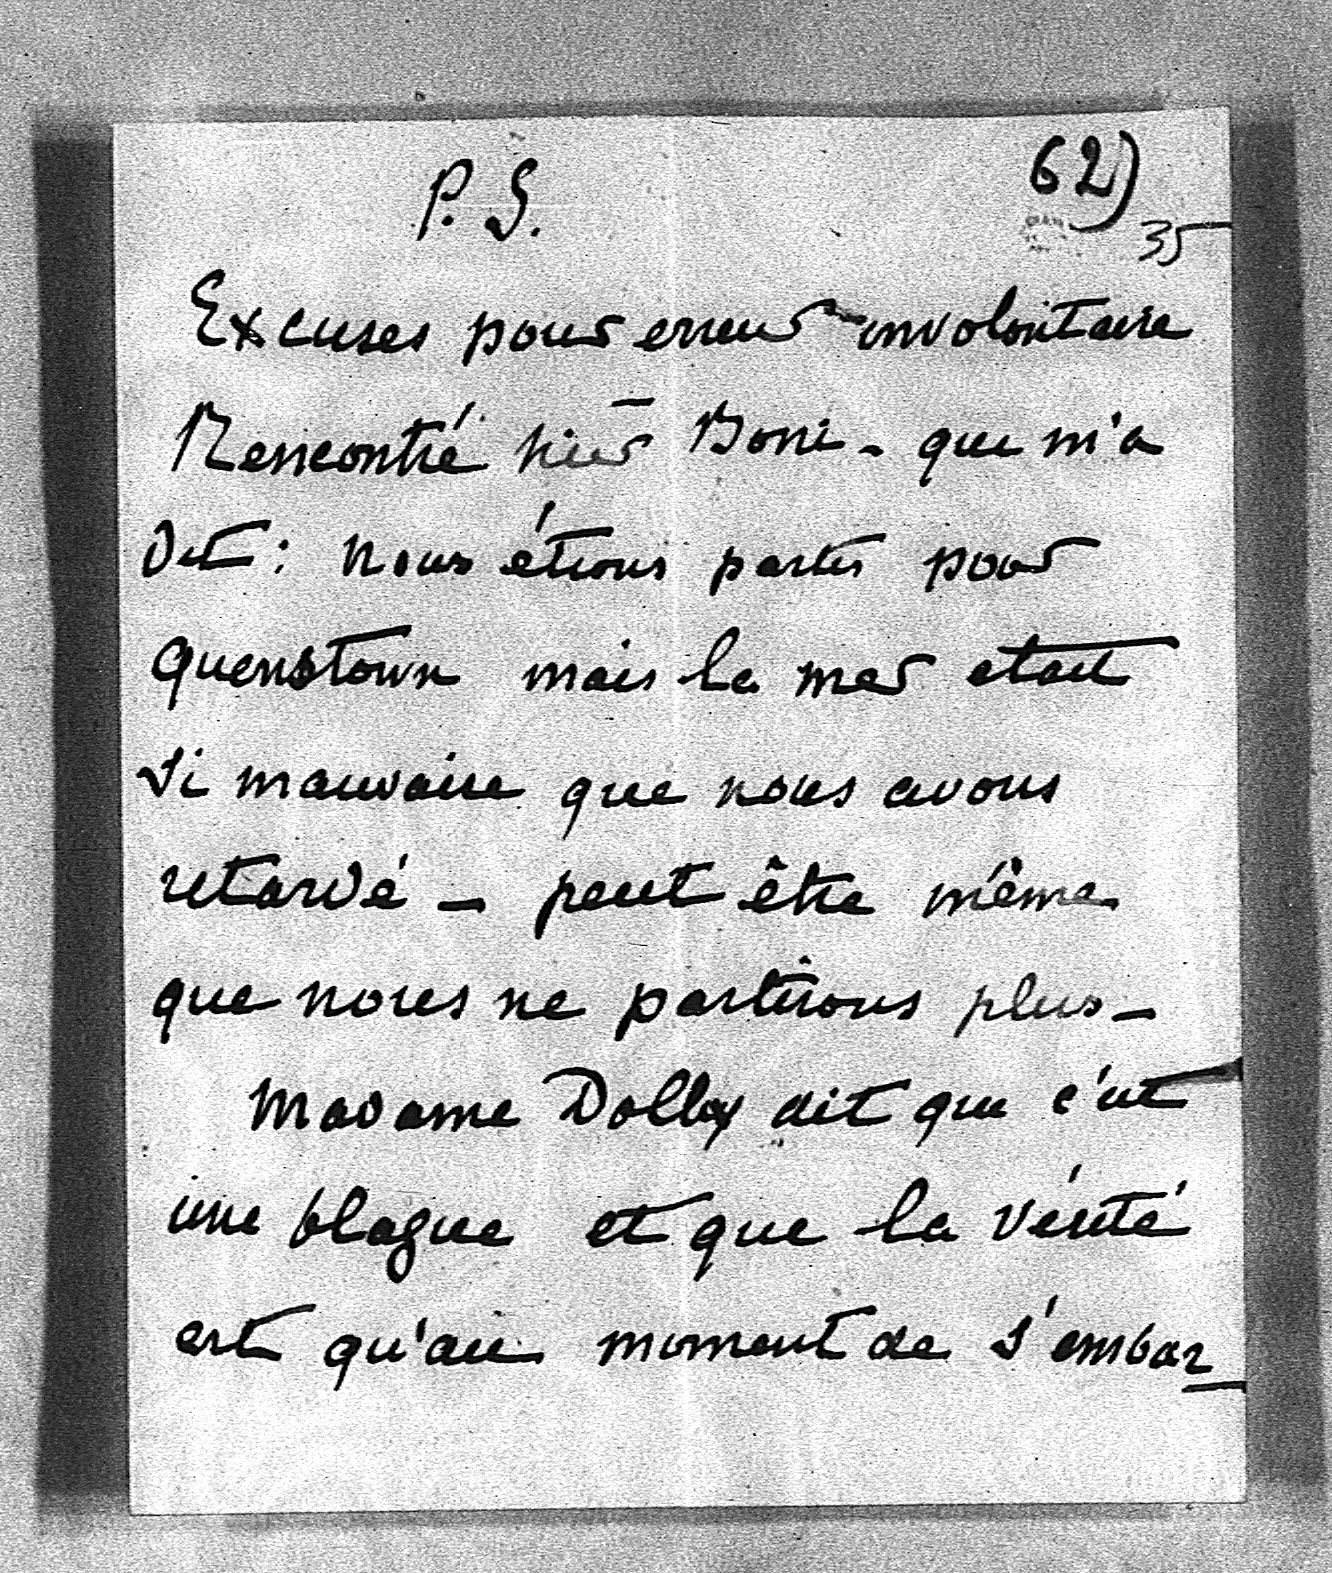 P.S.
62)
35
Excuses pour erreur involontaire
Rencontré hier Boni - qui m'a
dit : nous étions partis pour
Quenstown mais la mer etait
si mauvaise que nous avons
retardé - peut être même
que nous ne partirons plus -
Madame Dolly dit que c'est
une blague et que la vérité
est qu'au moment de s'embar